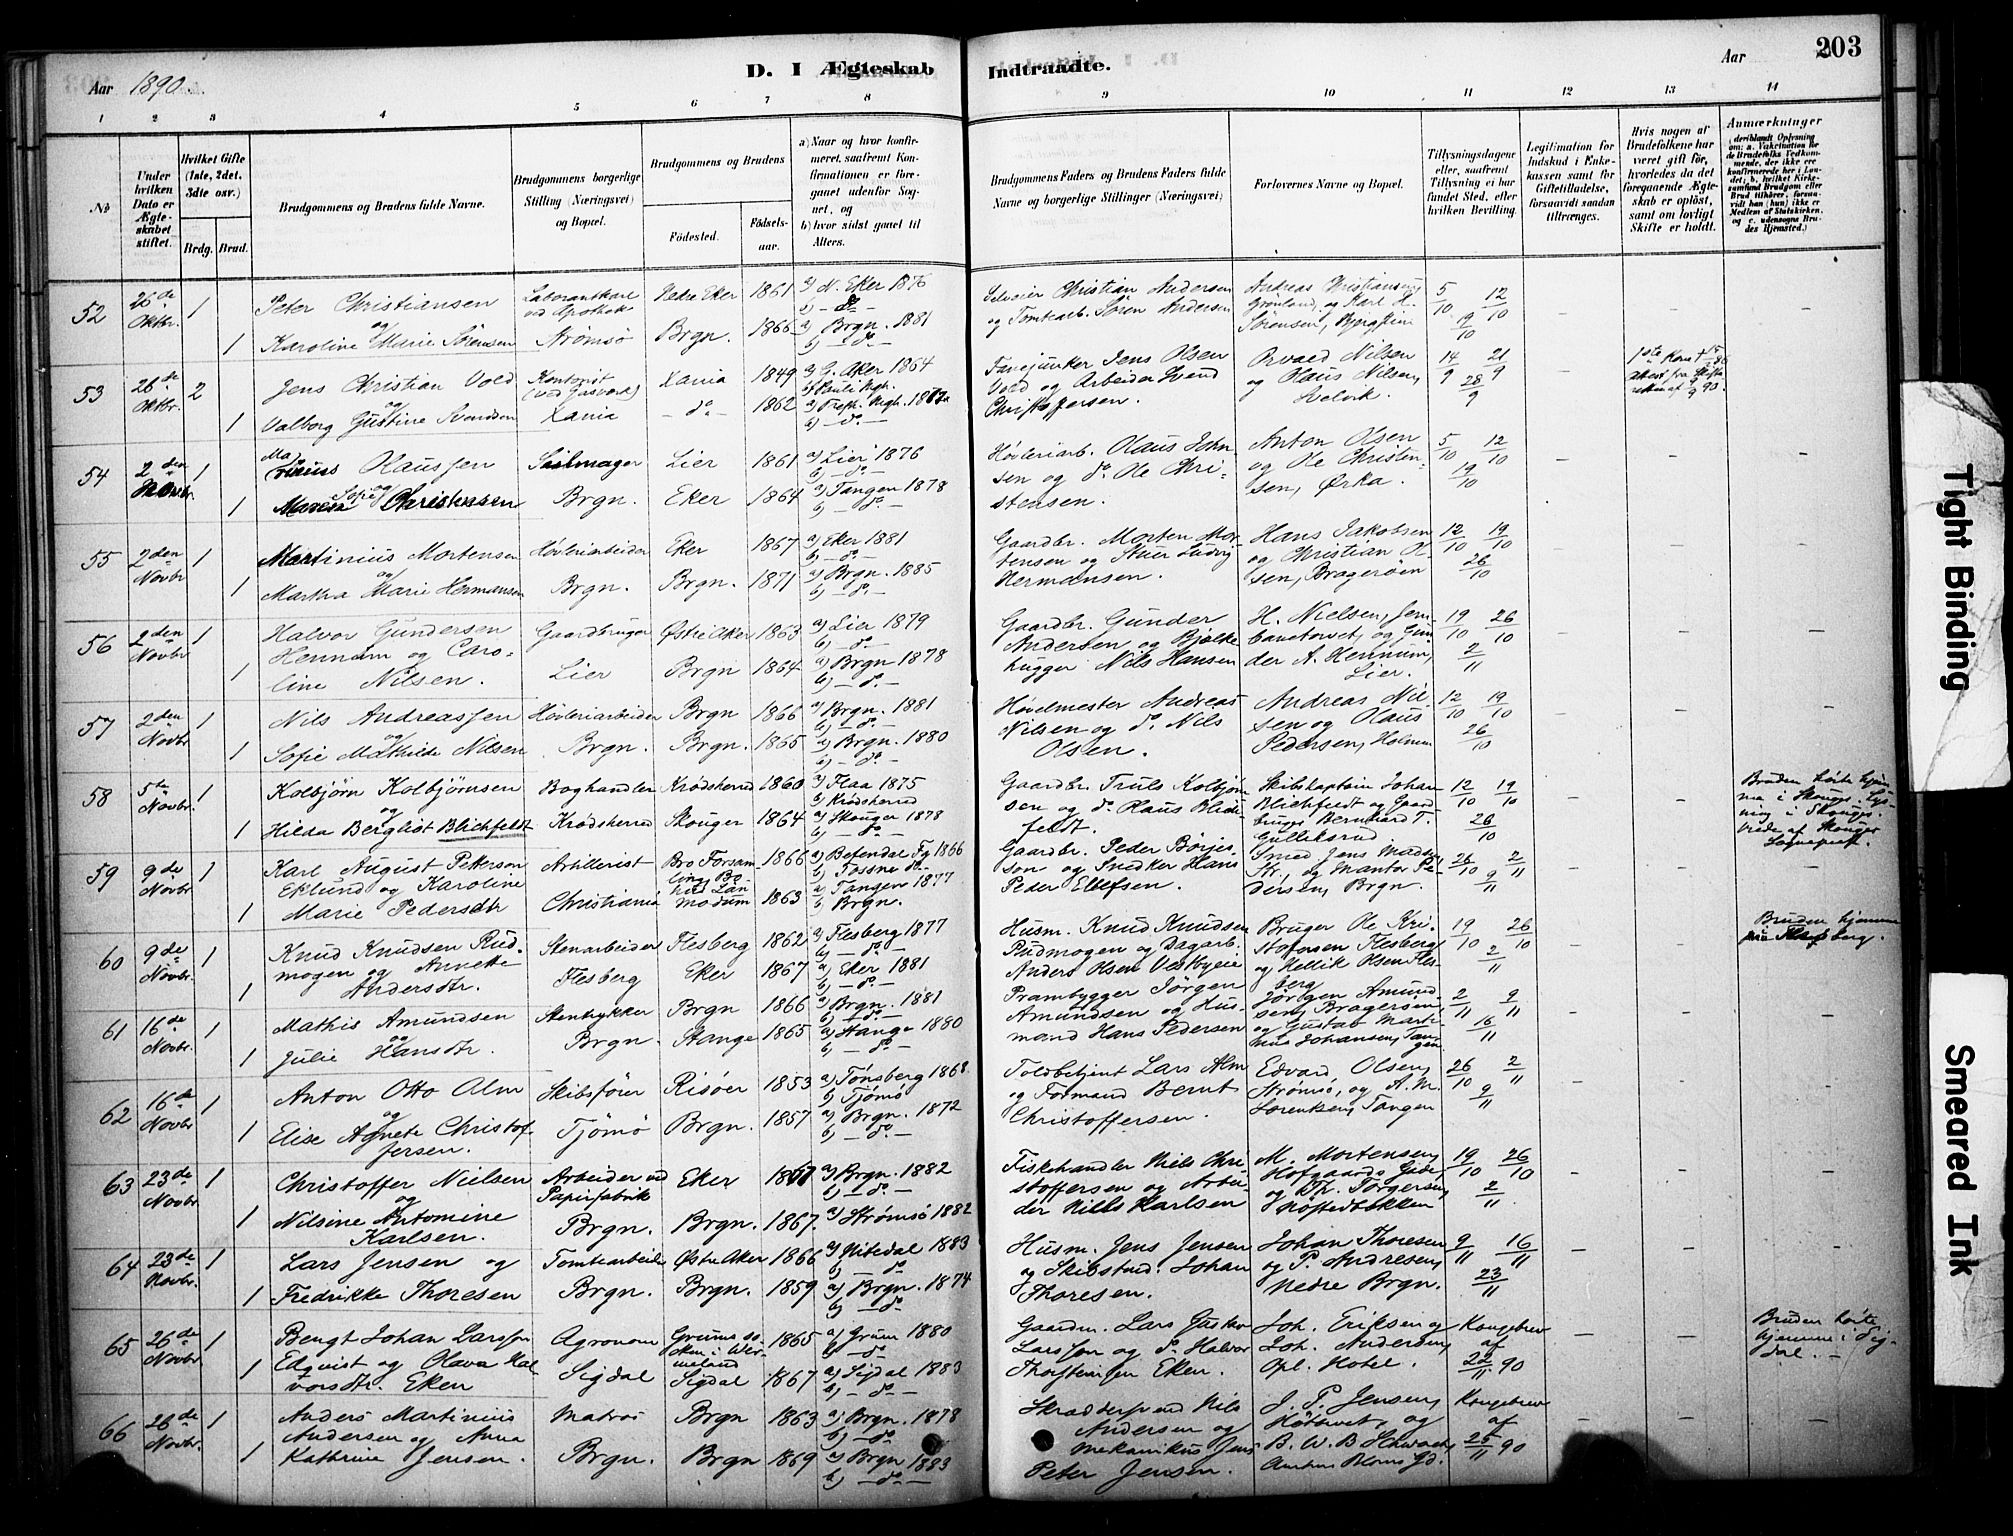 Aar 1890.
D. I Ægteskab
Indtraadte.
Aar
203
1 2 3 4 5 6 7 8 9 10 11 12 13 14
№
Under hvilken Dato er Ægteskabet stiftet.
Hvilket Gifte (1ste, 2det, 3die osv.)
Brdg. Brud.
Brudgommens og Brudens fulde Navne.
Brudgommens borgerlige Stilling (Næringsvei) og Bopæl.
Brudgommens og Brudens
Fødested.
Fødselsaar.
a) Naar og hvor konfirmeret, saafremt Konfirmationen er foregaaet udenfor Sognet, og
b) hvor sidst gaaet til Alters.
Brudgommens Faders og Brudens Faders fulde Navne og borgerlige Stillinger (Næringsvei)
Forlovernes Navne og Bopæl.
Tillysningsdagene eller, saafremt Tillysning ei har fundet Sted, efter hvilken Bevilling.
Legitimation for Indskud i Enkekassen samt for Giftetilladelse, forsaavidt saadan tiltrænges.
Hvis nogen af Brudefolkene har været gift før, hvorledes da det foregaaende Ægteskab er opløst, samt om lovligt Skifte er holdt.
Anmærkninger
52 26de Oktbr. 1 Peter Christiansen Laborantkarl ved Apothek Nedre Eker 1861 a) N. Eker 1876 b) – do –
og 1 Karoline Marie Sørensen Strømsø Brgn. 1866 a) Brgn. 1881 b) – do –
Christian Andersen og Tomtearb. Søren Andersen
Andreas Christiansen, Grønland, og Karl H. Sørensen,
5/10 12/10 19/10
53 26de Oktbr. 2 Jens Christian Vold Kontorist (ved Gasværk) Xania 1849 a) G. Aker 1864
og 1 Valborg Gustine Svendsen Xania – do – 1862
Fanejunker Jens Olsen Vold og Arbeider Svend Christoffersen.
Nilsen og Olaus Nilsen,
14/9 21/9 28/9
54 2den Novbr. 1 Marius Olaussen Seilmager Lier 1861 a) Lier 1876 b) – do –
og 1 Sofie Christensen Brgn. Eker 1864 a) Tangen 1878 b) – do –
Høvleriarb. Olaus Johnsen og do Ole Christensen.
Anton Olsen og Ole Christensen, Ørka.
5/10 12/10 19/10
55 2den Novbr 1 Martinius Mortensen Høvleriarbeider Eker 1867 a) Eker 1881 b) – do –
og 1 Martha Marie Hermansen Brgn. Brgn. 1871 a) Brgn. 1885 b) – do –
Gaardbr. Morten Mortensen og Ludvig Hermansen.
Hans Jakobsen og Christian Olsen, Bragerøen
12/10 19/10 26/10
56 2den Novbr 1 Halvor Gundersen Hennum og Caroline Nilsen. Gaardbruger Østre Aker 1863 a) Lier 1879 b) – do –
1 Lier Brgn 1864 a) Brgn 1878 b) – do –
Gaardbr. Gunder Andersen og Bjelkehugger Nils Hansen
H. Nielsen, Jernbanetorvet, og Gunder A. Hennum, Lier.
19/10 26/10 2/11
57 2den Novbr 1 Nils Andreassen Høvleriarbeider Brgn 1866 a) Brgn. 1881 b) – do –
og 1 Sofie Mathilde Nilsen Brgn. Brgn. 1865 a) Brgn. 1880 b) – do –
Høvelmester Andreas Nilsen og do Nils Olsen.
Andreas Nilsen og Olaus Pedersen, Holmen
12/10 19/10 26/10
58 5te Novbr. 1 Kolbjørn Kolbjørnsen Boghandler Krødsherred 1860 a) Flaa 1875 b) Krødsherred
og 1 Hilda Bergliot Blichfeldt Krødsherred Skouger 1864 a) Skouger 1878 b) – do –
Gaardbr. Truls Kolbjørnsen og do Claus Blichfeldt.
Skibskaptein Johan Blichfeldt og Gaardbruger Bernhard T. Gulliksrud
12/10 19/10 26/10
59 9de Novbr 1 Karl August Petterson Eklund og Karoline Marie Pedersdtr Artillerist 1866
1 Christiania Modum 1863 a) Tangen 1877 b) Brgn.
Gaardbr. Peder Börjesson og Snedker Hans Peder Ellefsen.
Smed Jens Madsen, Str., og Mantor Pedersen, Brgn.
26/10 2/11 9/11
60 9de Novbr. 1 Knud Knudsen Rudmogen og Annette Andersdtr. Stenarbeider Flesberg 1862 a) Flesberg 1877 b) – do –
1 Flesberg Eker 1867 a) Eker 1881 b) – do –
Husm. Knud Knudsen Rudmogen og Dagarb. Anders Olsen Vestbyeie
Bruger Ole Kristofersen Flesberg og Hellik Olsen Flesberg
19/10 26/10 2/11
Bruden hjemme paa Flesberg.
61 16de Novbr. 1 Mathis Amundsen Stentrykker Brgn 1866 a) Brgn. 1881 b) – do –
og 1 Julie Hansdtr. Brgn. Stange 1865 a) Stange 1880 b) – do –
Prambygger Jörgen Amundsen og Husmand Hans Pedersen
Jörgen Amundsen, Bragerøen og Gustav Martinius Johansen, Tangen
2/11 9/11 16/11
62 16de Novbr 1 Anton Otto Alm Skibsfører Risöer 1853 a) Tönsberg 1868 b) Tjömö
og 1 Elise Agnete Christoffersen. Tjömö Brgn. 1857 a) Brgn. 1872 b) – do –
Toldbetjent Lars Alm og Formand Bernt Christoffersen.
Edvard Olsen, Strømsö, og A. M. Lorentzen, Tangen
26/10 2/11 9/11
63 23de Novbr. 1 Christoffer Nielsen Arbeider ved Papirfabrik Eker 1867 a) Brgn. 1882 b) – do –
og 1 Nilsine Antomine Karlsen. Brgn. Brgn. 1867. a) Strömsö 1882
Fiskehandler Niels Christoffersen og Arbeider Nils Karlsen
M. Mortensen, Hofgaards Gade og Chr. Torgersen,
19/10 26/10 2/11
64 23de Novbr. 1 Lars Jensen og Tomtearbeider Østre Aker 1866 a) Nitedal 1883 b) – do
1 Fredrikke Thoresen Brgn. Brgn. 1859 a) Brgn. 1874 b) – do –
Husm. Jens Jensen og Skibstmd. Johan Thoresen.
Johan Thoresen og P. Andresen, Nedre Brgn.
9/11 16/11 23/11
65 26de Novbr. 1 Bengt Johan Larsson Edqvist og Olava Halvorsdtr. Eken Agronom Grums socken i Wermeland 1865 a) Grum 1880 b) – do
1 Sigdal Sigdal 1867 a) Sigdal 1883 b) – do –
Gaardm. Lars Gustav Larsson og do Halvor Thorsteinsen Eken.
Joh. Eriksen og Joh. Andersen, Cpl. Hotel.
Kongebrev af 22/11 90
Bruden hørte hjemme i Sigdal. –
66 26de Novbr. 1 Anders Martinius Andersen og Anna Kathrine Jensen. Matros Brgn 1863 a) Brgn. 1878 b) – do
1 Brgn. Brgn 1869 a) Brgn 1883 b) – do –
Skræddersvend Nils Andersen og Mekanikus Jens Peter Jensen.
J. P. Jensen, og B. W. B. Schwartz,
Kongebrev af 25/11 90
Tight Binding
Smeared Ink